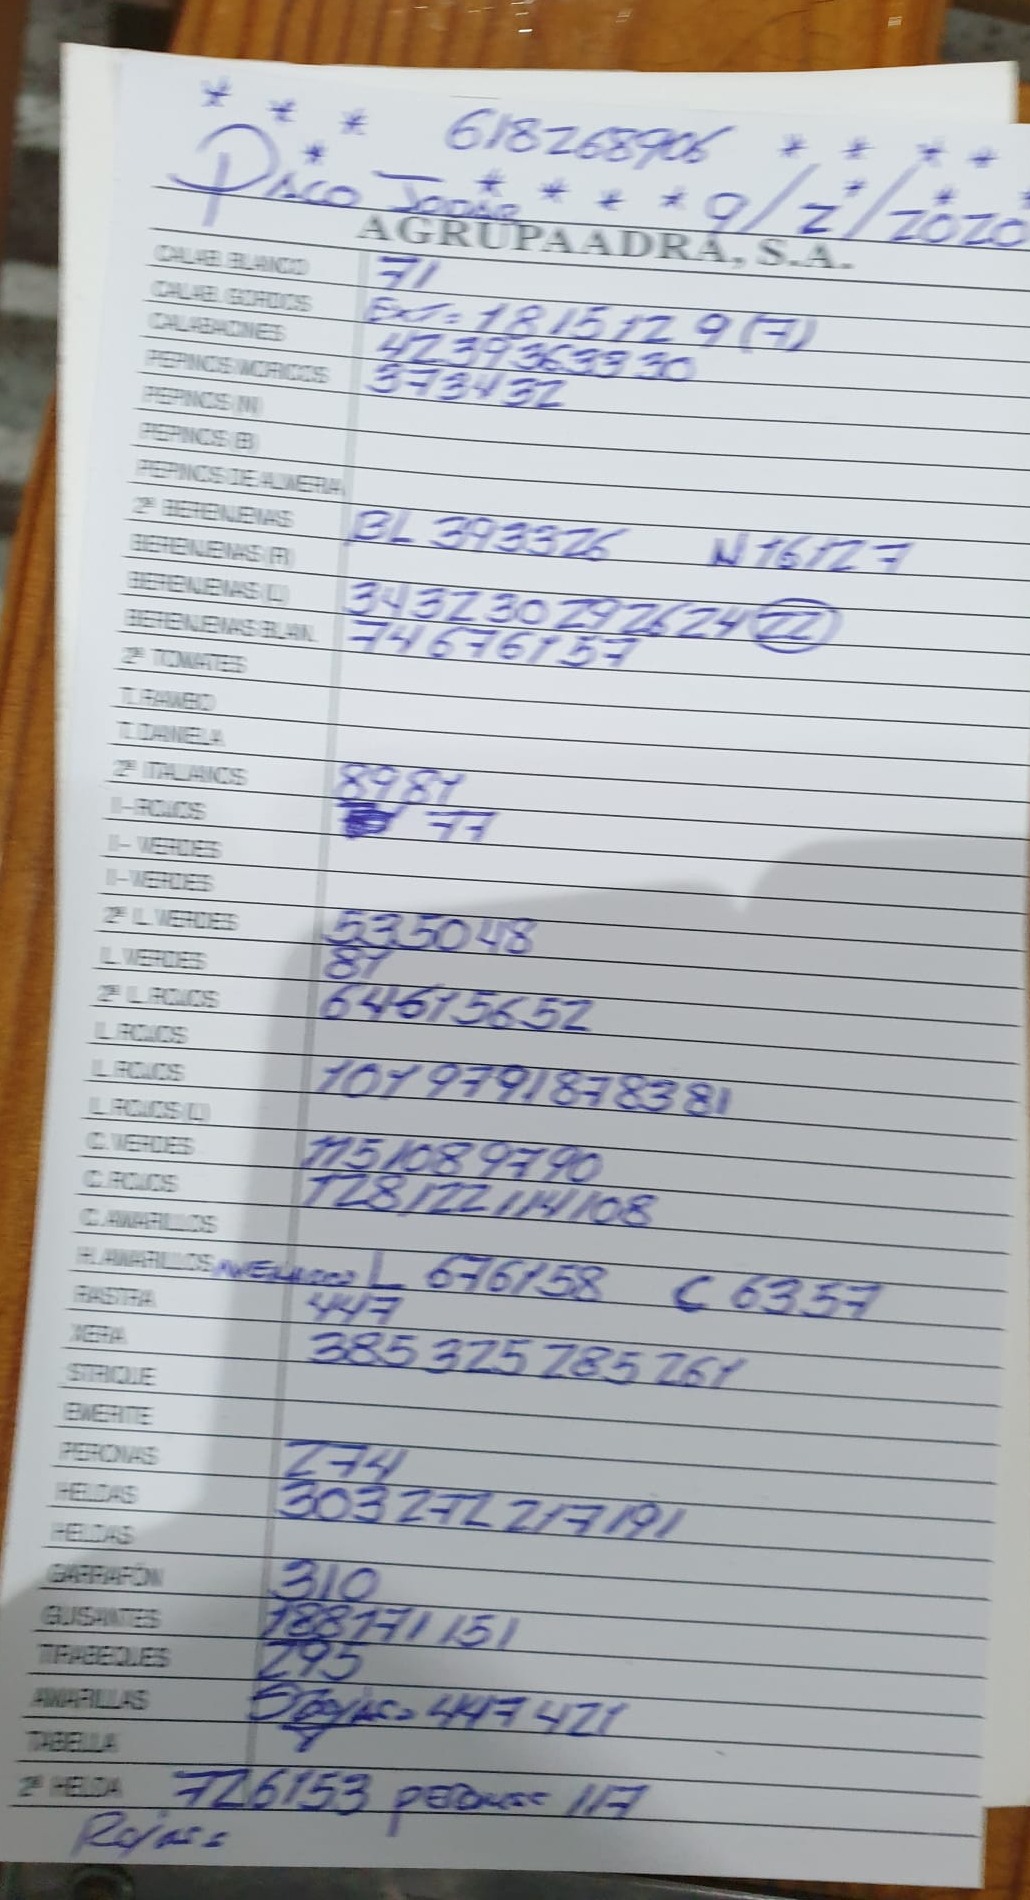 * * * 618268906 * * * *
Paco * * * * * 9/2/2020
AGRUPAADRA, S.A.
CALAB. BLANCO 71
CALAB. GORDOS Ext: 18 15 12 9 (7)
CALABACINES 42 39 36 33 30
PEPINOS MORICOS 37 34 32
PEPINOS (N)
PEPINOS (B)
PEPINOS DE ALMERIA
2ª BERENJENAS BL 39 33 26 N 16 12 7
BERENJENAS (R)
BERENJENAS (L) 34 32 30 29 26 24 22
BERENJENAS BLAN. 74 67 61 57
2ª TOMATES
T. RAMBO
T. DANIELA
2ª ITALIANOS 89 81
I-ROJOS 77
I-VERDES
I-VERDES
2ª L. VERDES 53 50 48
L. VERDES 81
2ª L. ROJOS 64 61 56 52
L. ROJOS
L. ROJOS 101 97 91 87 83 81
L. ROJOS (L)
C. VERDES 115 108 97 90
C. ROJOS 128 122 114 108
C. AMARILLOS
H. AMARILLOS L 67 61 58 C 63 57
RASTRA 447
XERA 385 325 285 261
STRIQUE
EMERITE
PERONAS 274
HELDAS 303 272 217 191
HELDAS
GARRAFÓN 310
GUISANTES 188 171 151
TIRABEQUES 295
AMARILLAS 447 421
TABELLA
2ª HELDA 72 61 53 117
Rojas: